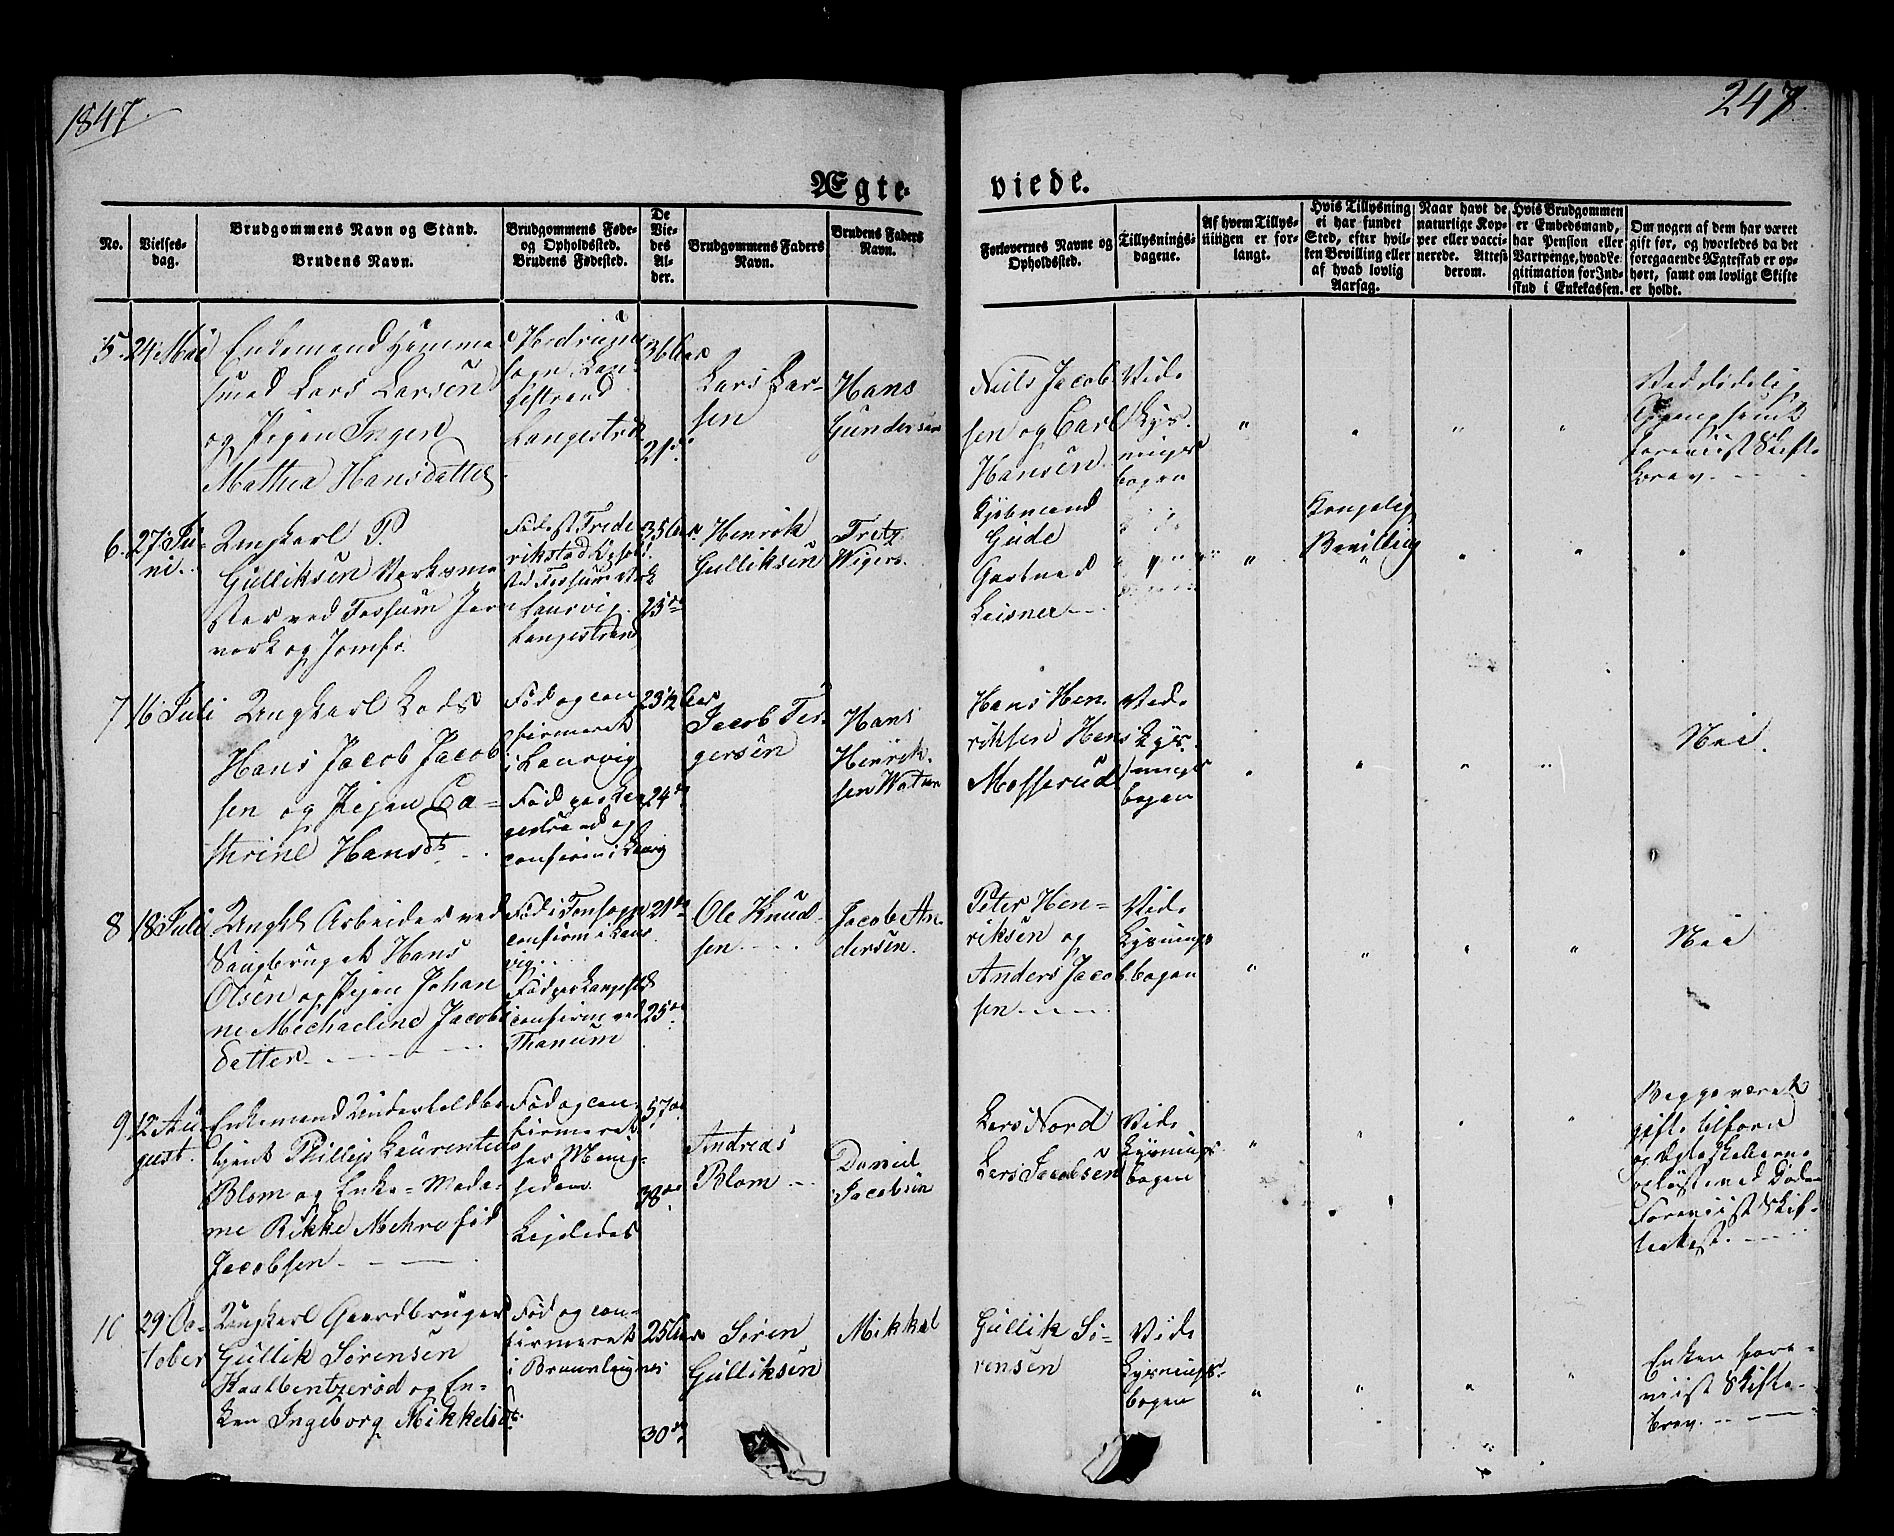 1847.
247.
Ægte-
viede.
No.
Vielses-
dag.
Brudgommens Navn og Stand.
Brudens Navn.
Brudgommens Føde-
og Opholdssted.
Brudens Fødested.
De
Vie-
des
Al-
der.
Brudgommens Faders
Navn.
Brudens Faders
Navn.
Forlovernes Navne og
Opholdssted.
Tillysnings-
dagene.
Af hvem Tillys-
ningen er for-
langt.
Hvis Tillysning
ei har fundet
Sted, efter hvil-
ken Bevilling eller
af hvad lovlig
Aarsag.
Naar havt de
naturlige Kop-
per eller vacci-
nerede. Attest
derom.
Hvis Brudgommen
er Embedsmand,
har Pension eller
Vartpenge, hvad Le-
gitimation for Ind-
skud i Enkekassen.
Om nogen af dem har været
gift før, og hvorledes da det
foregaaende Ægteskab er op-
hørt, samt om lovligt Skifte
er holdt.
5. 24 Mai
Enkemand Hamme
smed Lars Larsen
og Pigen Inger
Mathea Hansdatter
sogn Lan-
gestrand
Langestrd
36 Aar
21
Lars Lar-
sen
Hans
Gundersen
Niels Jacob
sen og Carl
Hansen
Vide
Lys-
nings
bogen
foreviist Skifte
brev
6. 27 Ju-
ni.
Ungkarl P.
Gulliksen Værksme
ster ved Fossum Jern
værk og Jomfr.
Fød Frede
rikstad
Fossum
Laurvig
Langestrand
35 Aar
23
Henrik
Gulliksen
Fritz
Wigers.
Kjøbmand
Gude
Gartner
Leisner
Kongelig
Bevilling
7 16 Juli
Ungkarl Lods
Hans Jacob Jacob
sen og Pigen Ca-
thrine Hansdt
Fød og con
firmeret
i Laurvig
Fød paa Lan
gestrand og
confirm i Laurvig
23½ Aar
24
Jacob Ter-
gersen
Hans
Henrik-
sen
Hans Hen
riksen Hans
Mosserud
Vide
Lys-
nings
bogen
Nei.
8 18 Juli
Ungkl Arbeider ved
Saugbruget Hans
Olsen og Pigen Johan
ne Michaeline Jacobs
datter
Fød i
confirm i Laur
vig
Fød paa Langestd
confirm ved
Thanum
21
25
Ole Knud
sen
Jacob An
dersen.
Peter Hen-
riksen og
Anders Jacob
sen
Vide
Lysnings
bogen
Nei
9 12 Au-
gust.
Enkemand
Phillip Laurentius
Blom og Enke-Mada-
me Rikke Mehre fød
Jacobsen
Fød og con
firmeret
Leyleder
57
38
Andreas
Blom
Daniel
Jacobsen
Lars Nord
Lars Jacobsen
Vide
Lysnings
bogen
Begge været
gifte tilforn
og Ægteskaberne
opløste ved Døden
Foreviist Skif-
10 29 Oc-
tober
Ungkarl Gaardbruger
Gullik Sørensen
Kaalbentzerød og En-
ken Ingeborg Mikkelsdt.
Fød og con-
firmeret
i Brunlaugnes
25 Aar
30
Søren
Gulliksen
Mikkel
Gullik Sø-
rensen
Vide
Lysnings
bogen
Enken fore-
viist Skifte-
brev